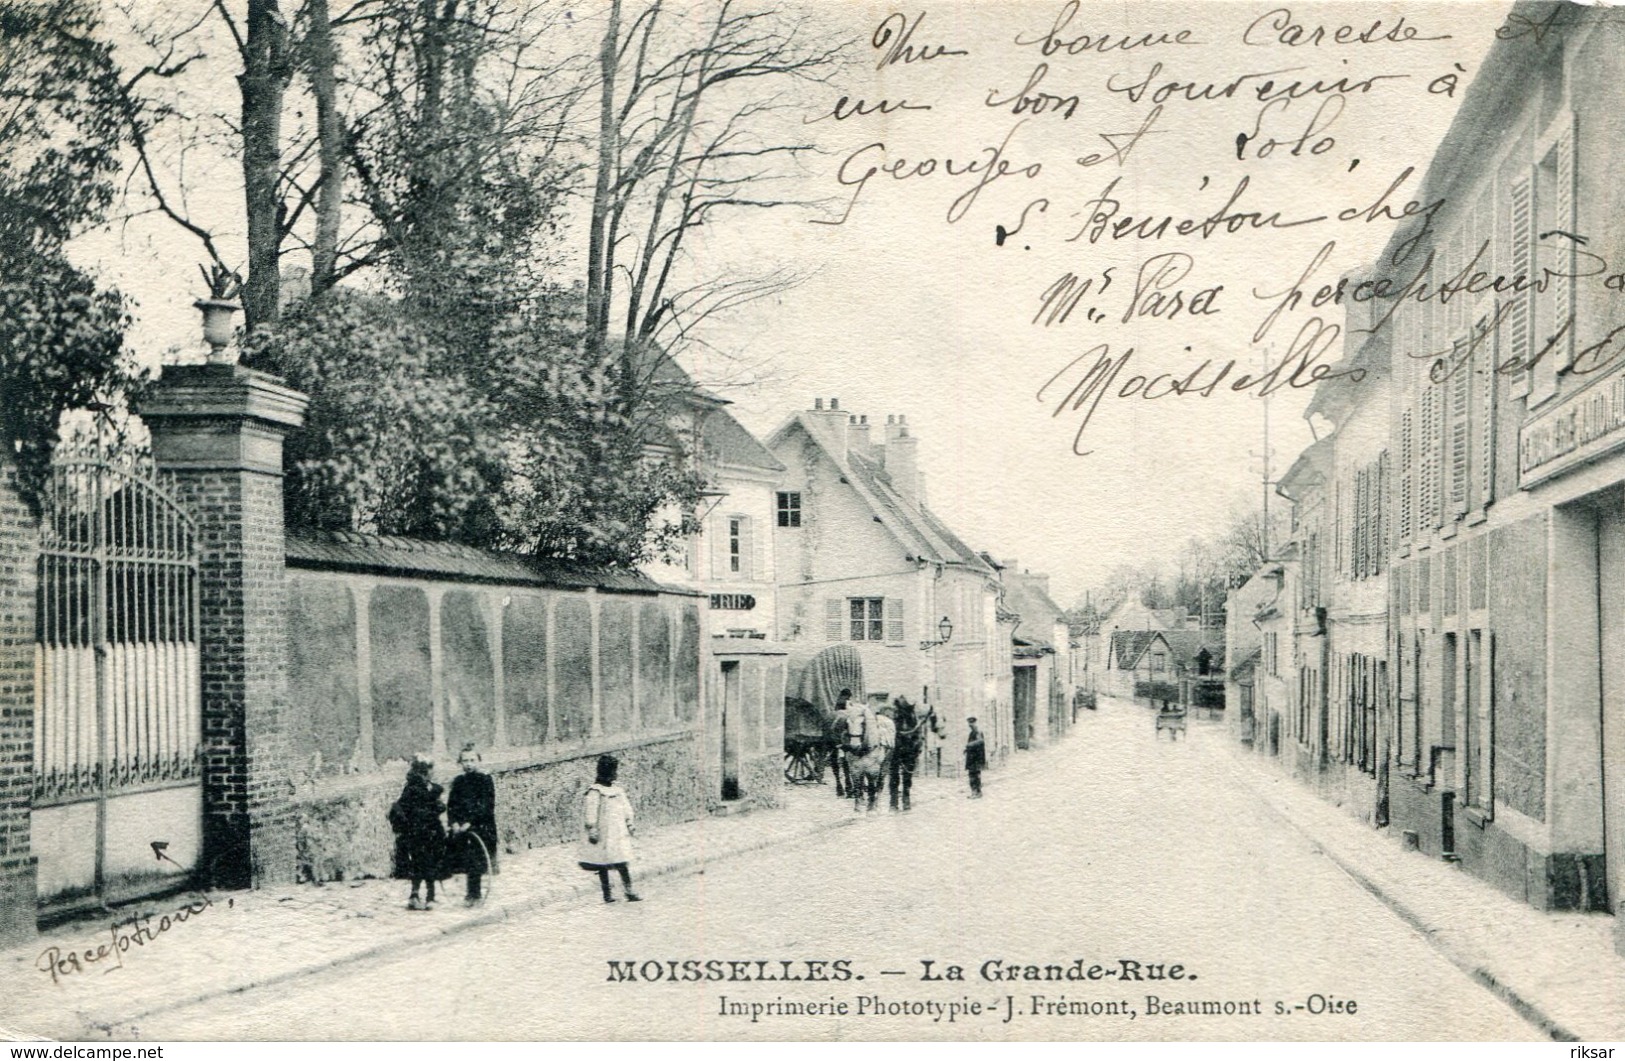 Une bonne Caresse et
un bon Souvenir à
Georges et Lolo,
S. chez
Mr. Para percepteur à
Moisselles S. et O.
ERIE
Perception
MOISSELLES. — La Grande-Rue.
Imprimerie Phototypie - J. Frémont, Beaumont s.-Oise
delcampe.net
riksar